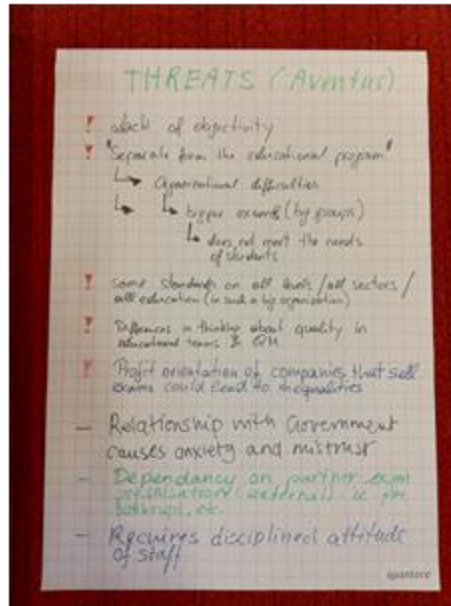 THREATS (Aventus)
! Lack of objectivity
! "Separate form the educational program"
↳ Organizational difficulties
↳ ↳ bigger exams (big groups)
↳ does not meet the needs
of students
! Same standards on all levels / all sectors /
all education (in such a big organization)
! Differences in thinking about quality in
educational teams & QM
! Profit orientation of companies that sell
exams could lead to inequalities
- Relationship with Government
causes anxiety and mistrust
- Dependancy on partner exam
organisations external ie
bankrupt, etc.
- Requires disciplined attitude
of staff